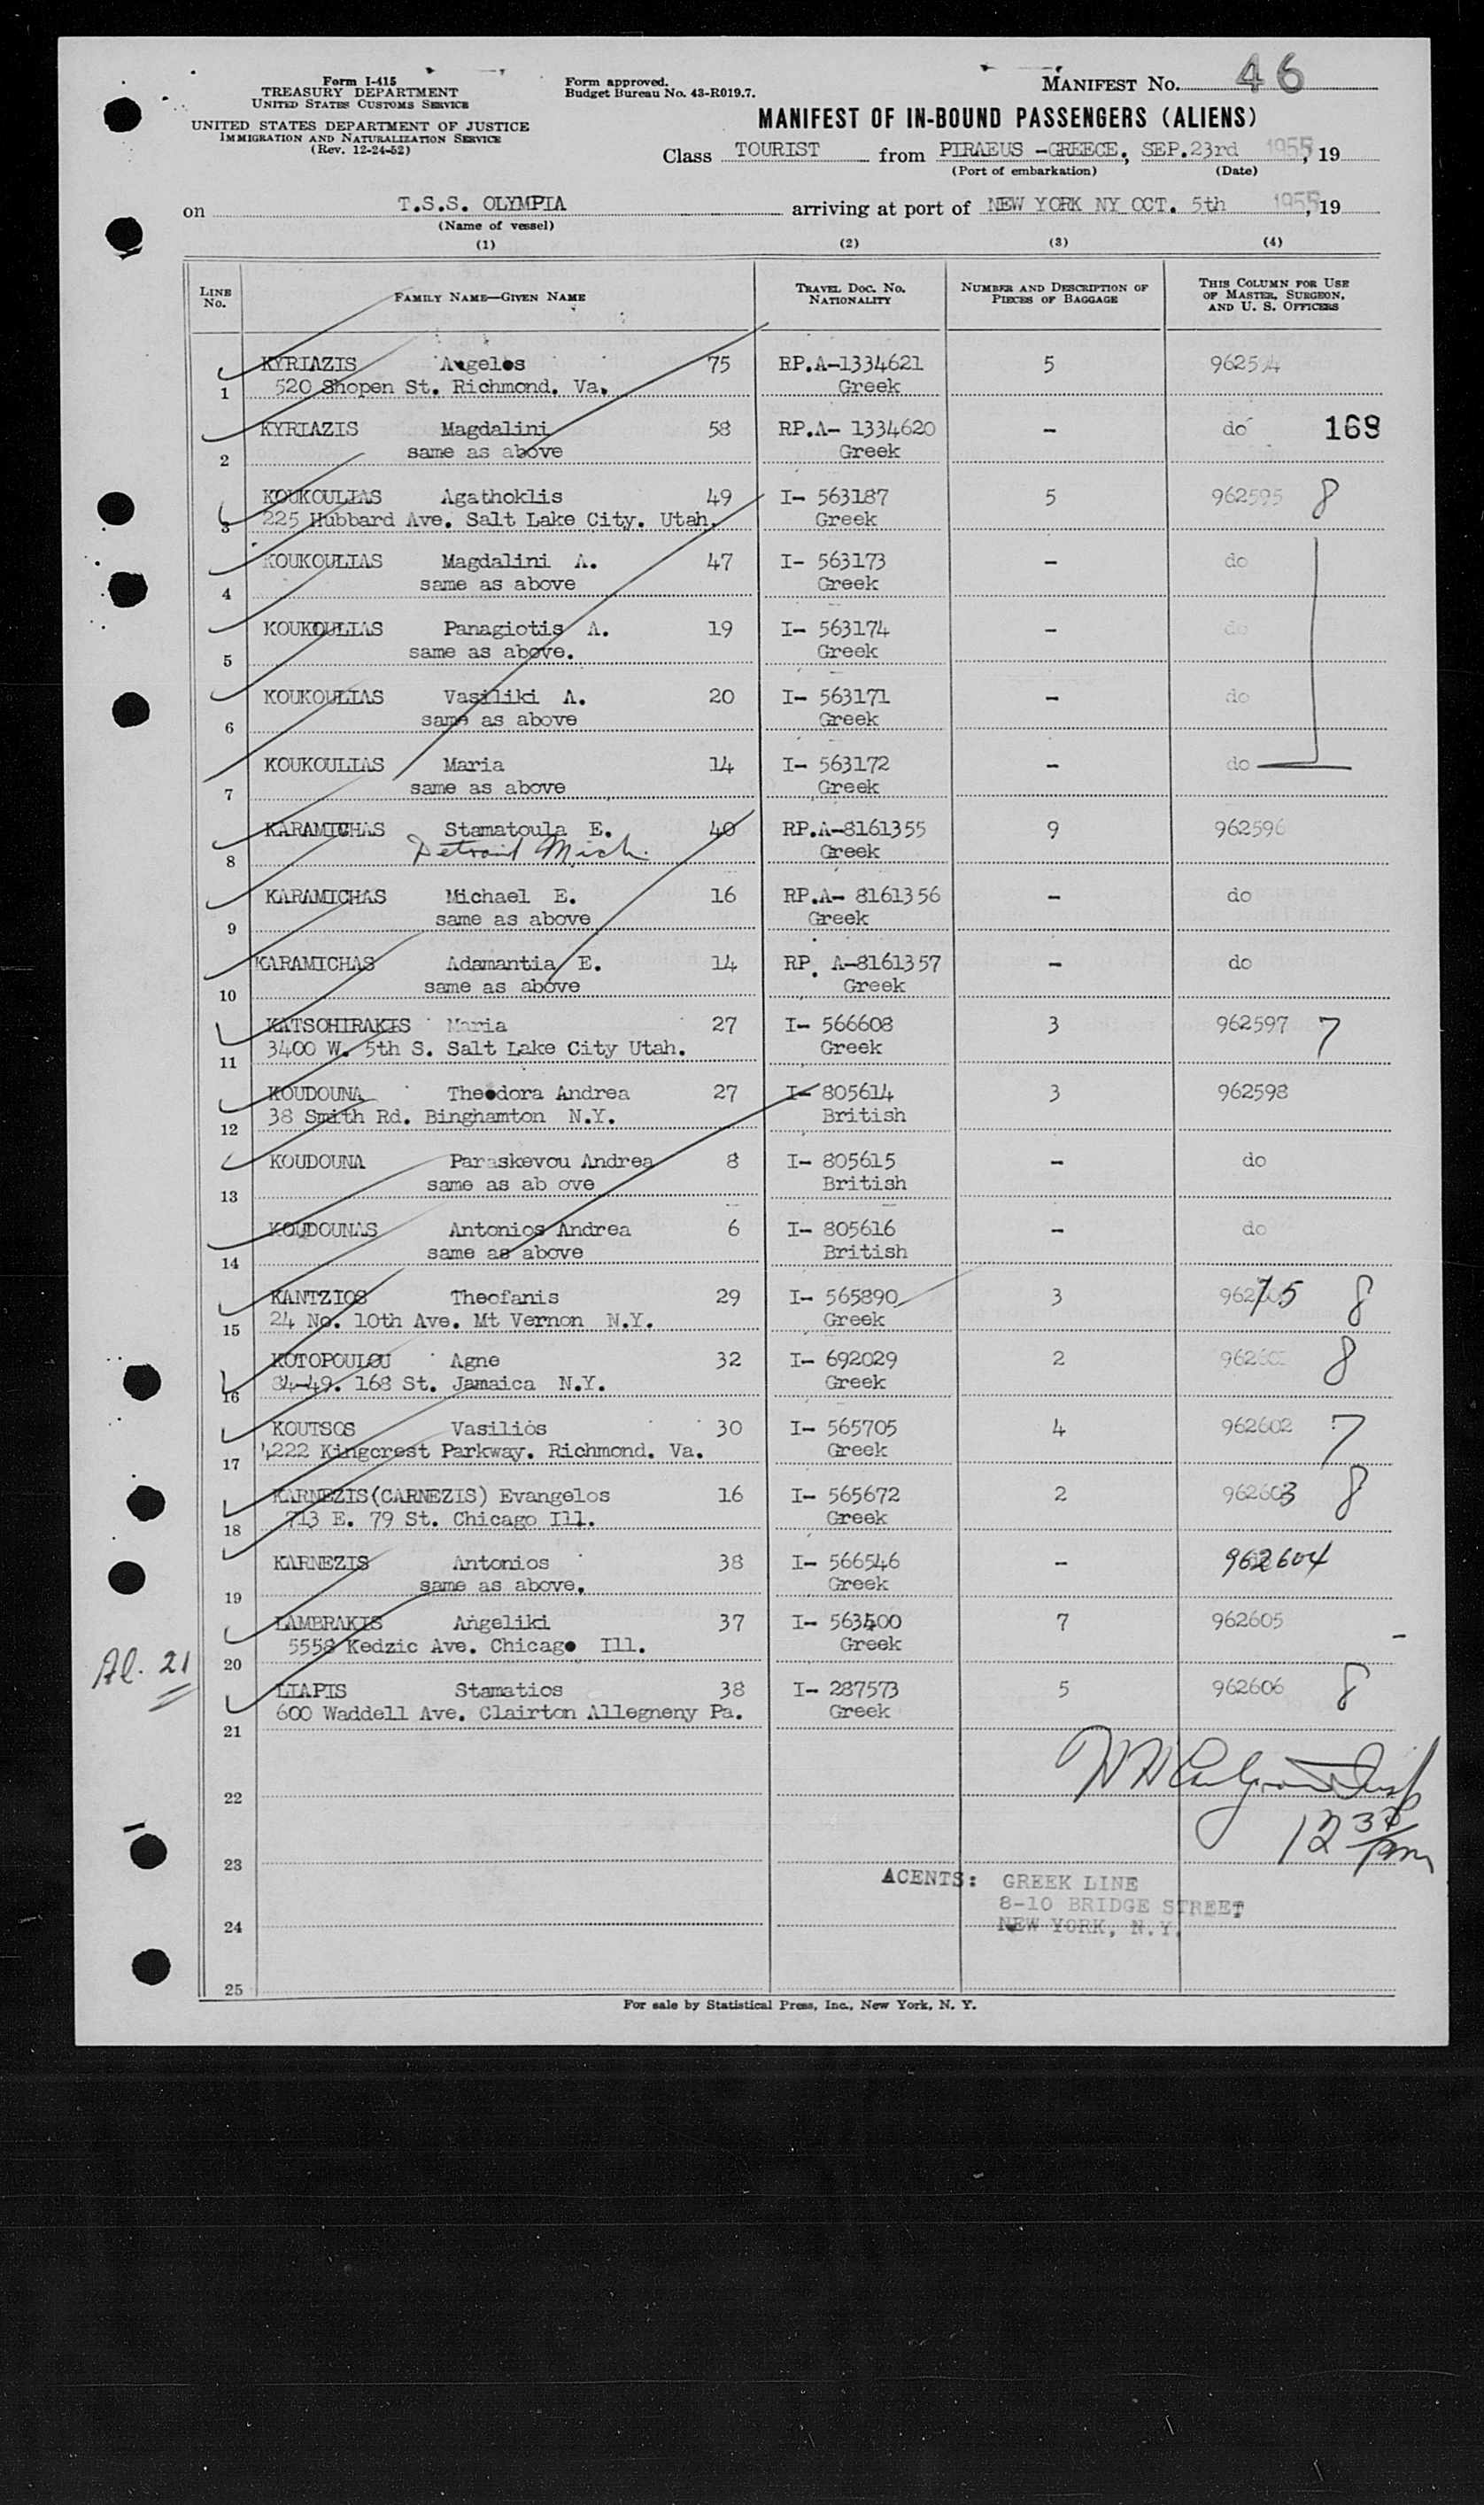 Form I-415
TREASURY DEPARTMENT
UNITED STATES CUSTOMS SERVICE
UNITED STATES DEPARTMENT OF JUSTICE
IMMIGRATION AND NATURALIZATION SERVICE
(Rev. 12-24-52)
Form approved.
Budget Bureau No. 43-R019.7.
MANIFEST No. 46
MANIFEST OF IN-BOUND PASSENGERS (ALIENS)
Class TOURIST from PIRAEUS -GREECE, SEP.23rd 1955, 19
(Port of embarkation) (Date)
on T.S.S. OLYMPIA arriving at port of NEW YORK NY OCT. 5th 1955, 19
(Name of vessel)
(1) (2) (3) (4)
LINE No. FAMILY NAME—GIVEN NAME TRAVEL DOC. No. NATIONALITY NUMBER AND DESCRIPTION OF PIECES OF BAGGAGE THIS COLUMN FOR USE OF MASTER, SURGEON, AND U. S. OFFICERS
KYRIAZIS Angelos 75 RP.A-1334621 5 962594
1 520 Shopen St. Richmond. Va. Greek
KYRIAZIS Magdalini 58 RP.A- 1334620 - do 168
2 same as above Greek
KOUKOULIAS Agathoklis 49 I- 563187 5 962595 8
3 225 Hubbard Ave. Salt Lake City. Utah. Greek
KOUKOULIAS Magdalini A. 47 I- 563173 - do
4 same as above Greek
KOUKOULIAS Panagiotis A. 19 I- 563174 - do
5 same as above. Greek
KOUKOULIAS Vasiliki A. 20 I- 563171 - do
6 same as above Greek
KOUKOULIAS Maria 14 I- 563172 - do
7 same as above Greek
KARAMICHAS Stamatoula E. 40 RP.A-8161355 9 962596
8 Detroit Mich. Greek
KARAMICHAS Michael E. 16 RP.A- 8161356 - do
9 same as above Greek
KARAMICHAS Adamantia E. 14 RP. A-8161357 - do
10 same as above Greek
KATSOHIRAKIS Maria 27 I- 566608 3 962597 7
11 3400 W. 5th S. Salt Lake City Utah. Greek
KOUDOUNA Theodora Andrea 27 I- 805614 3 962598
12 38 Smith Rd. Binghamton N.Y. British
KOUDOUNA Paraskevou Andrea 8 I- 805615 - do
13 same as ab ove British
KOUDOUNAS Antonios Andrea 6 I- 805616 - do
14 same as above British
KANTZIOS Theofanis 29 I- 565890 3 8
15 24 No. 10th Ave. Mt Vernon N.Y. Greek
KOTOPOULOU Agne 32 I- 692029 2 8
16 84-49. 168 St. Jamaica N.Y. Greek
KOUTSOS Vasilios 30 I- 565705 4 962602 7
17 4222 Kingcrest Parkway. Richmond. Va. Greek
KARNEZIS(CARNEZIS) Evangelos 16 I- 565672 2 962603 8
18 713 E. 79 St. Chicago Ill. Greek
KARNEZIS Antonios 38 I- 566546 - 962604
19 same as above. Greek
LAMBRAKIS Angeliki 37 I- 563400 7 962605
20 5558 Kedzic Ave. Chicago Ill. Greek
Al. 21
LIAPIS Stamatios 38 I- 287573 5 962606 8
21 600 Waddell Ave. Clairton Allegneny Pa. Greek
22
12 30 pm
23
AGENTS: GREEK LINE
8-10 BRIDGE STREET
24 NEW YORK, N.Y.
25
For sale by Statistical Press, Inc., New York, N. Y.